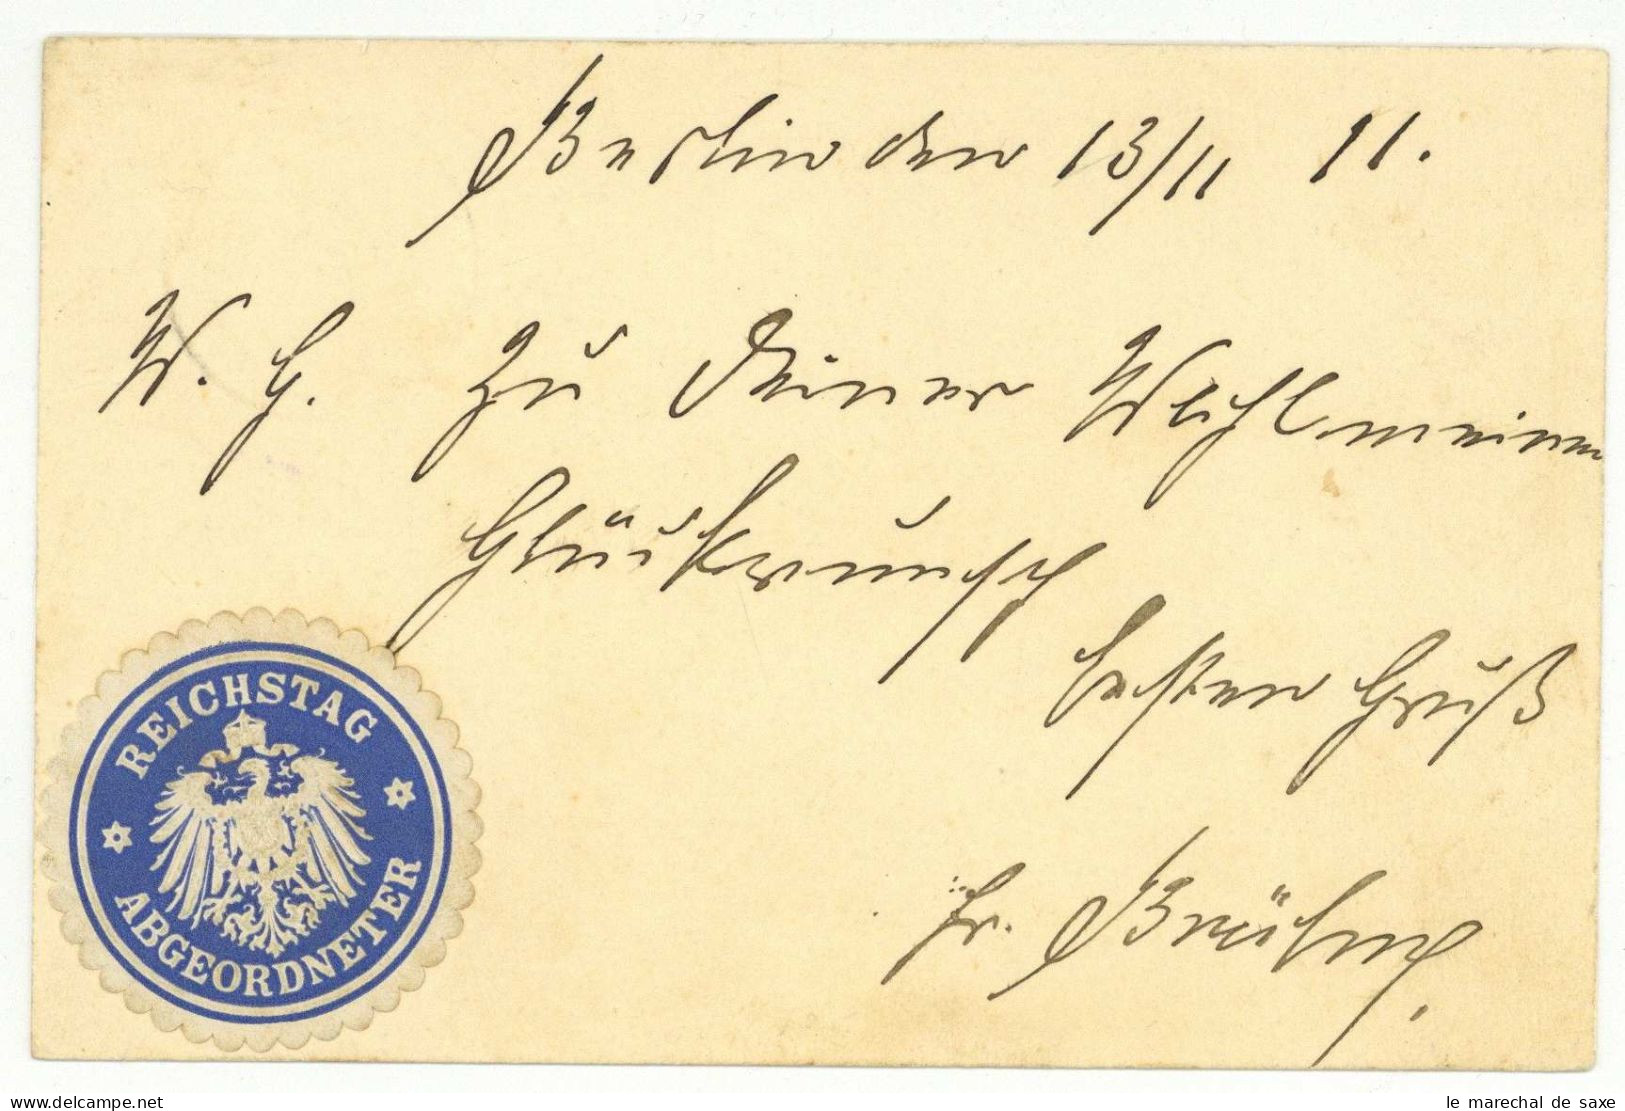 Berlin den 13/11 11.
W. H. Zu Deiner Wahl meinen
Glückwunsch
besten Gruß
Fr. Brühne
REICHSTAG
ABGEORDNETER
www.delcampe.net
le marechal de saxe